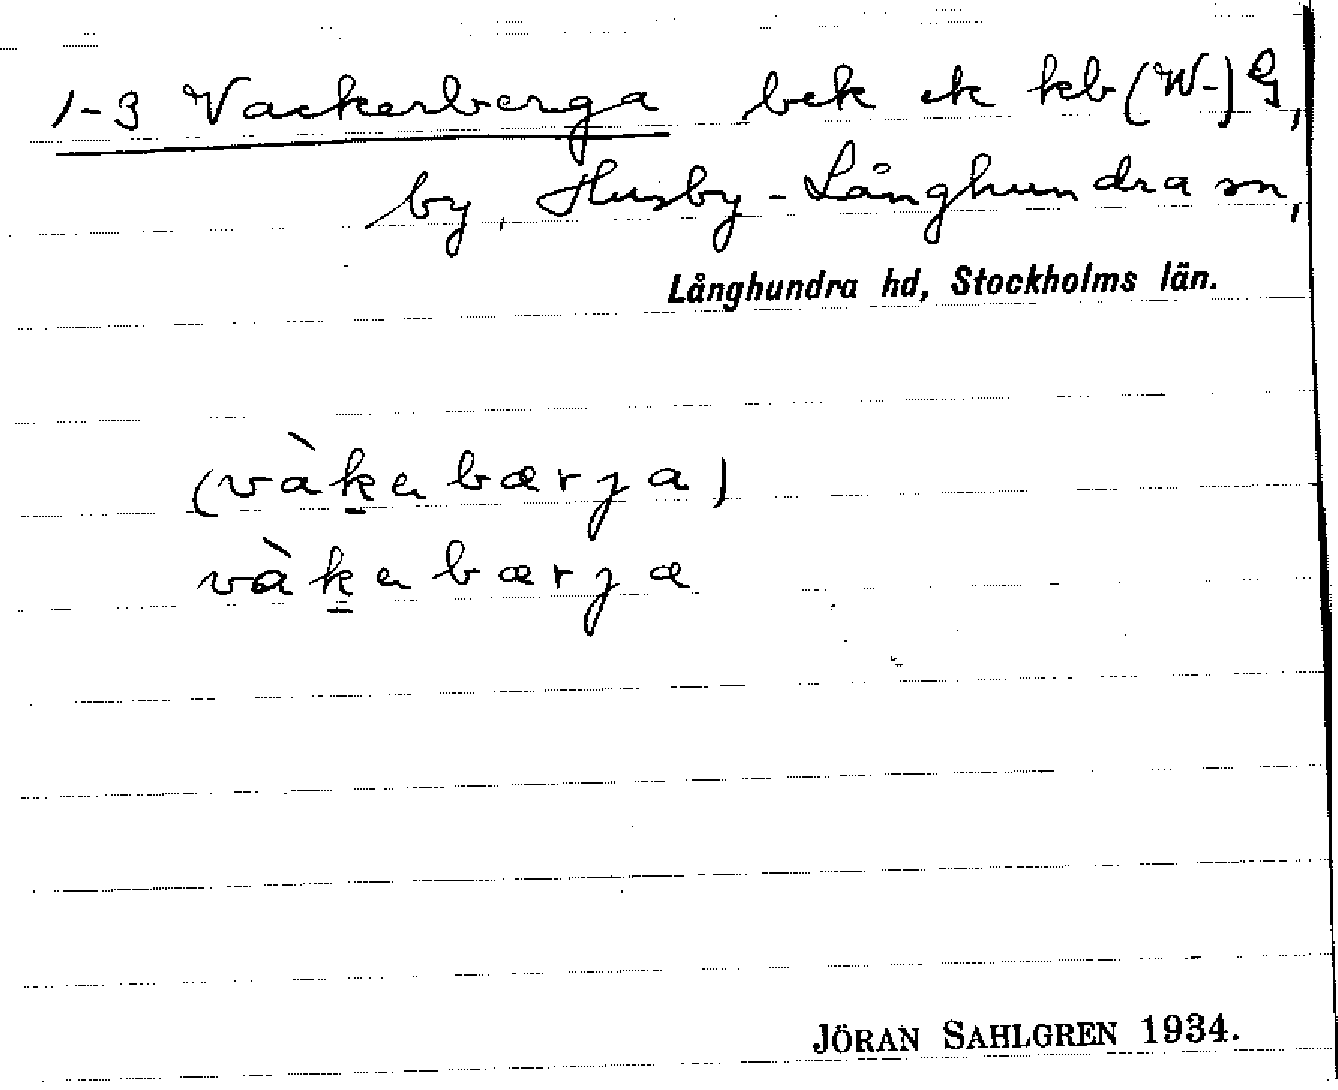 1-3 Vackerberga bek ek kb (W-) G,
by, Husby-Långhundra sn,
Långhundra hd, Stockholms län.
(vàk̠a bærja)
vàk̠a bærja
JÖRAN SAHLGREN 1934.